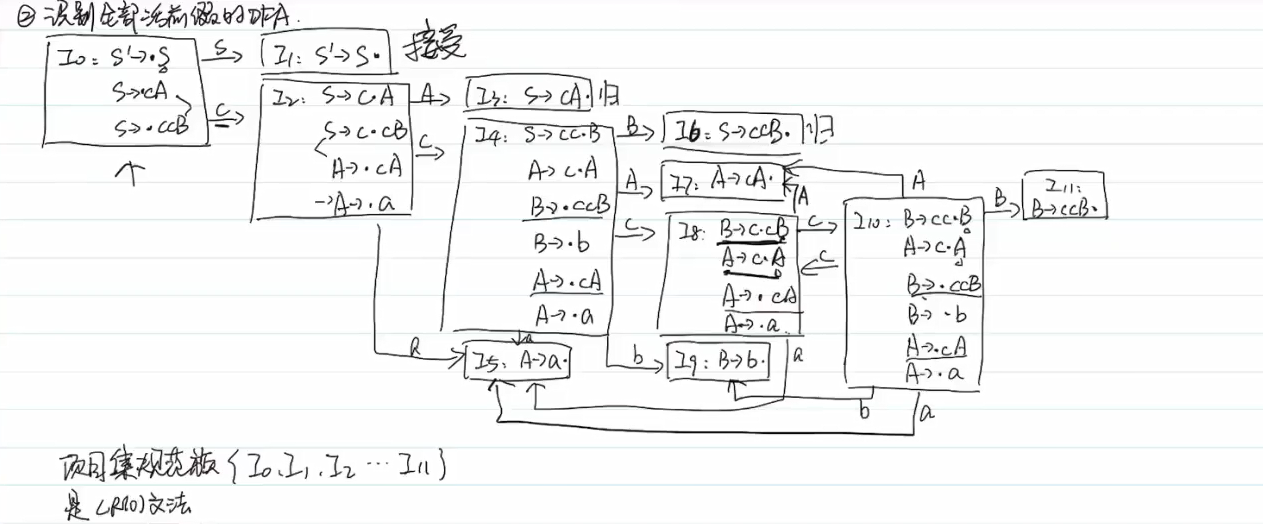 ② 识别全部活前缀的DFA.
I0: S'→·S
S→·cA
S→·ccB
S
c
I1: S'→S·
接受
I2: S→c·A
S→c·cB
A→·cA
→A→·a
A
c
a
I3: S→cA·
归
I4: S→cc·B
A→c·A
B→·ccB
B→·b
A→·cA
A→·a
B
A
c
a
b
I5: A→a·
I6: S→ccB·
归
I7: A→cA·
I8: B→c·cB
A→c·A
A→·cA
A→·a
A
c
a
c
I9: B→b·
I10: B→cc·B
A→c·A
B→·ccB
B→·b
A→·cA
A→·a
A
B
b
a
I11:
B→ccB·
项目集规范族{I0,I1,I2…I11}
是LR(0)文法